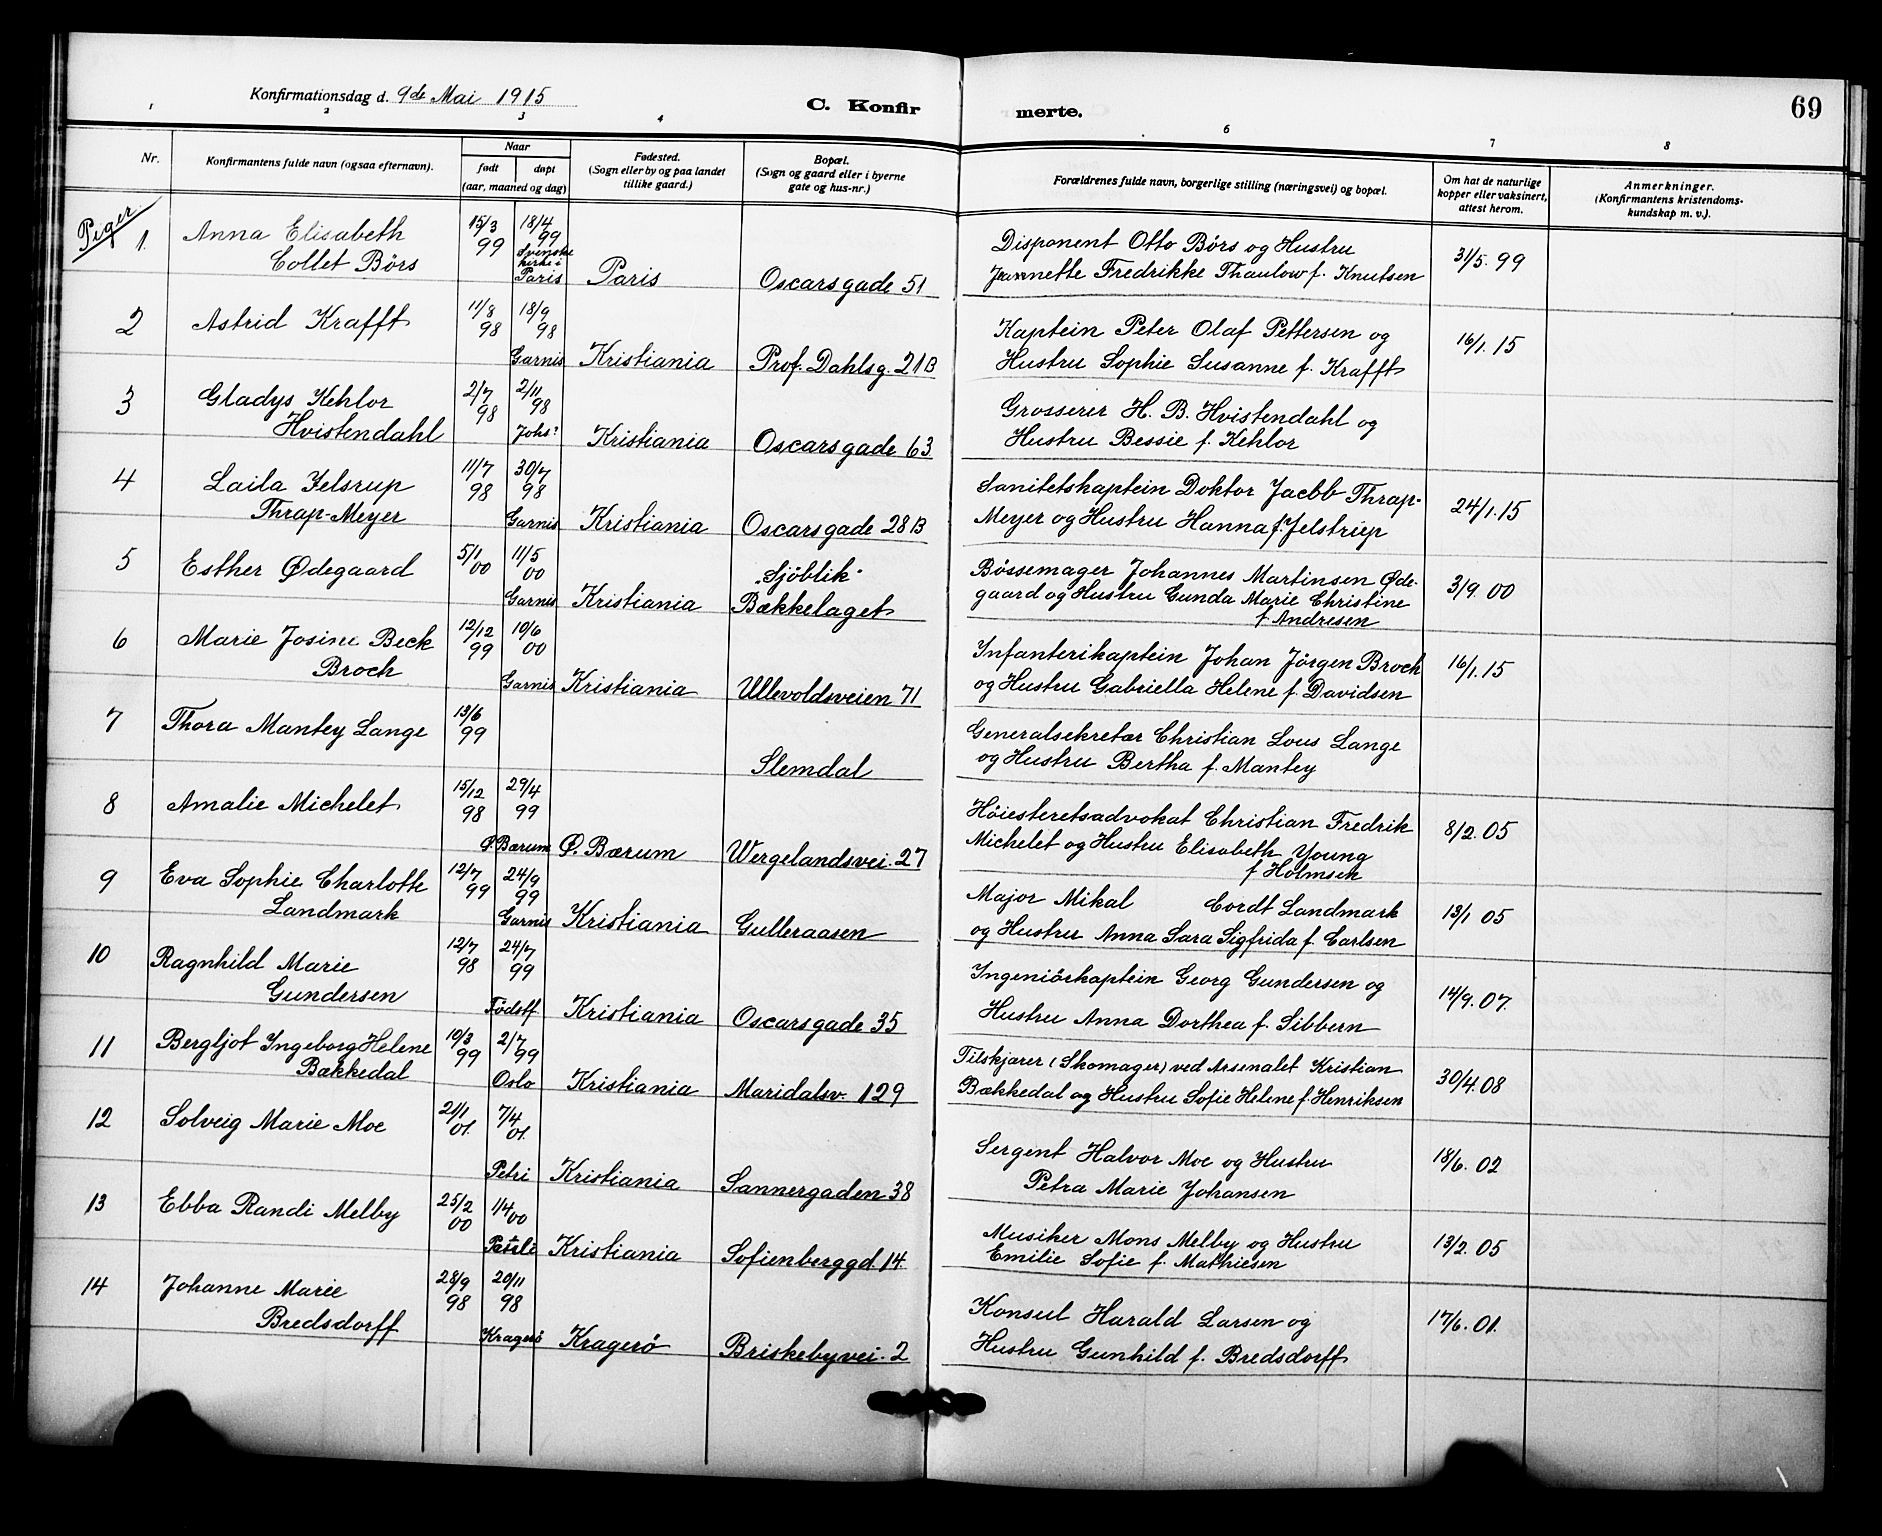 Konfirmationsdag d. 9de Mai 1915
C. Konfirmerte.
69
1 2 3 4 6 7 8
Nr.
Konfirmantens fulde navn (ogsaa efternavn).
Naar
født
døpt
(aar, maaned og dag)
Fødested.
(Sogn eller by og paa landet
tillike gaard.)
Bopæl.
(Sogn og gaard eller i byerne
gate og hus-nr.)
Forældrenes fulde navn, borgerlige stilling (næringsvei) og bopæl.
Om hat de naturlige
kopper eller vaksinert,
attest herom.
Anmerkninger.
(Konfirmantens kristendoms-
kundskap m. v.).
Piger.
1 Anna Elisabeth 15/3 99 18/4 99 Disponent Otto Börs og Hustru 31/5. 99
Collet Börs Svenske kirke i Paris Paris Oscarsgade 51 Jeannette Fredrikke Thaulow f. Knutsen
2 Astrid Krafft 11/8 98 18/9 98 Kaptein Peter Olaf Pettersen og 16/1. 15
Garnis Kristiania Prof. Dahlsg. 21B Hustru Sophie Susanne f. Krafft
3 Gladys Kehlor 2/7 98 2/11 98 Grosserer H. B. Hvistendahl og
Hvistendahl Johs: Kristiania Oscarsgade 63 Hustru Bessie f. Kehlor
4 Laila Jelsrup 11/7 98 30/7 98 Sanitetskaptein Doktor Jacob Thrap- 24/1. 15
Thrap-Meyer Garnis Kristiania Oscarsgade 28B Meyer og Hustru Hanna f. Jelstrup
5 Esther Ødegaard 5/1 00 11/5 00 „Sjöblik" Bössemager Johannes Martinsen Øde- 3/9. 00
Garnis Kristiania Bækkelaget gaard og Hustru Gunda Marie Christine
f. Andresen
6 Marie Josine Beck 12/12 99 10/6 00 Infanterikaptein Johan Jörgen Broch 16/1. 15
Broch Garnis Kristiania Ullevoldsveien 71 og Hustru Gabriella Helene f. Davidsen
7 Thora Mantey Lange 13/6 99 Generalsekretær Christian Lous Lange
Slemdal og Hustru Bertha f. Mantey
8 Amalie Michelet 15/12 98 29/4 99 Höiesteretsadvokat Christian Fredrik 8/2. 05
Ø. Bærum Ø. Bærum Wergelandsvei. 27 Michelet og Hustru Elisabeth Young
f. Holmsen
9 Eva Sophie Charlotte 12/7 99 24/9 99 Major Mikal Cordt Landmark 13/1 05
Landmark Garnis Kristiania Gulleraasen og Hustru Anna Sara Sigfrida f. Carlsen
10 Ragnhild Marie 12/7 98 24/7 99 Ingeniörkaptein Georg Gundersen og 14/9. 07.
Gundersen Födsstf Kristiania Oscarsgade 35 Hustru Anna Dorthea f. Sibbern
11 Bergljot Ingeborg Helene 10/3 99 2/7 99 Tilskjærer (Skomager) ved Arsenalet Kristian 30/4. 08
Bækkedal Oslo Kristiania Maridalsv. 129 Bækkedal og Hustru Sofie Helene f. Henriksen
12 Solveig Marie Moe 21/1 01. 7/4 01. Sergent Halvor Moe og Hustru 18/6. 02
Petri Kristiania Sannergaden 38 Petra Marie Johansen
13 Ebba Randi Melby 25/2 00 1/4 00 Musiker Mons Melby og Hustru 13/2. 05
Kristiania Sofienberggd. 14 Emilie Sofie f. Mathiesen
14 Johanne Marie 28/9 98 20/11 98 Konsul Harald Larsen og 17/6. 01.
Bredsdorff Kragerö Kragerö Briskebyvei. 2 Hustru Gunhild f. Bredsdorff